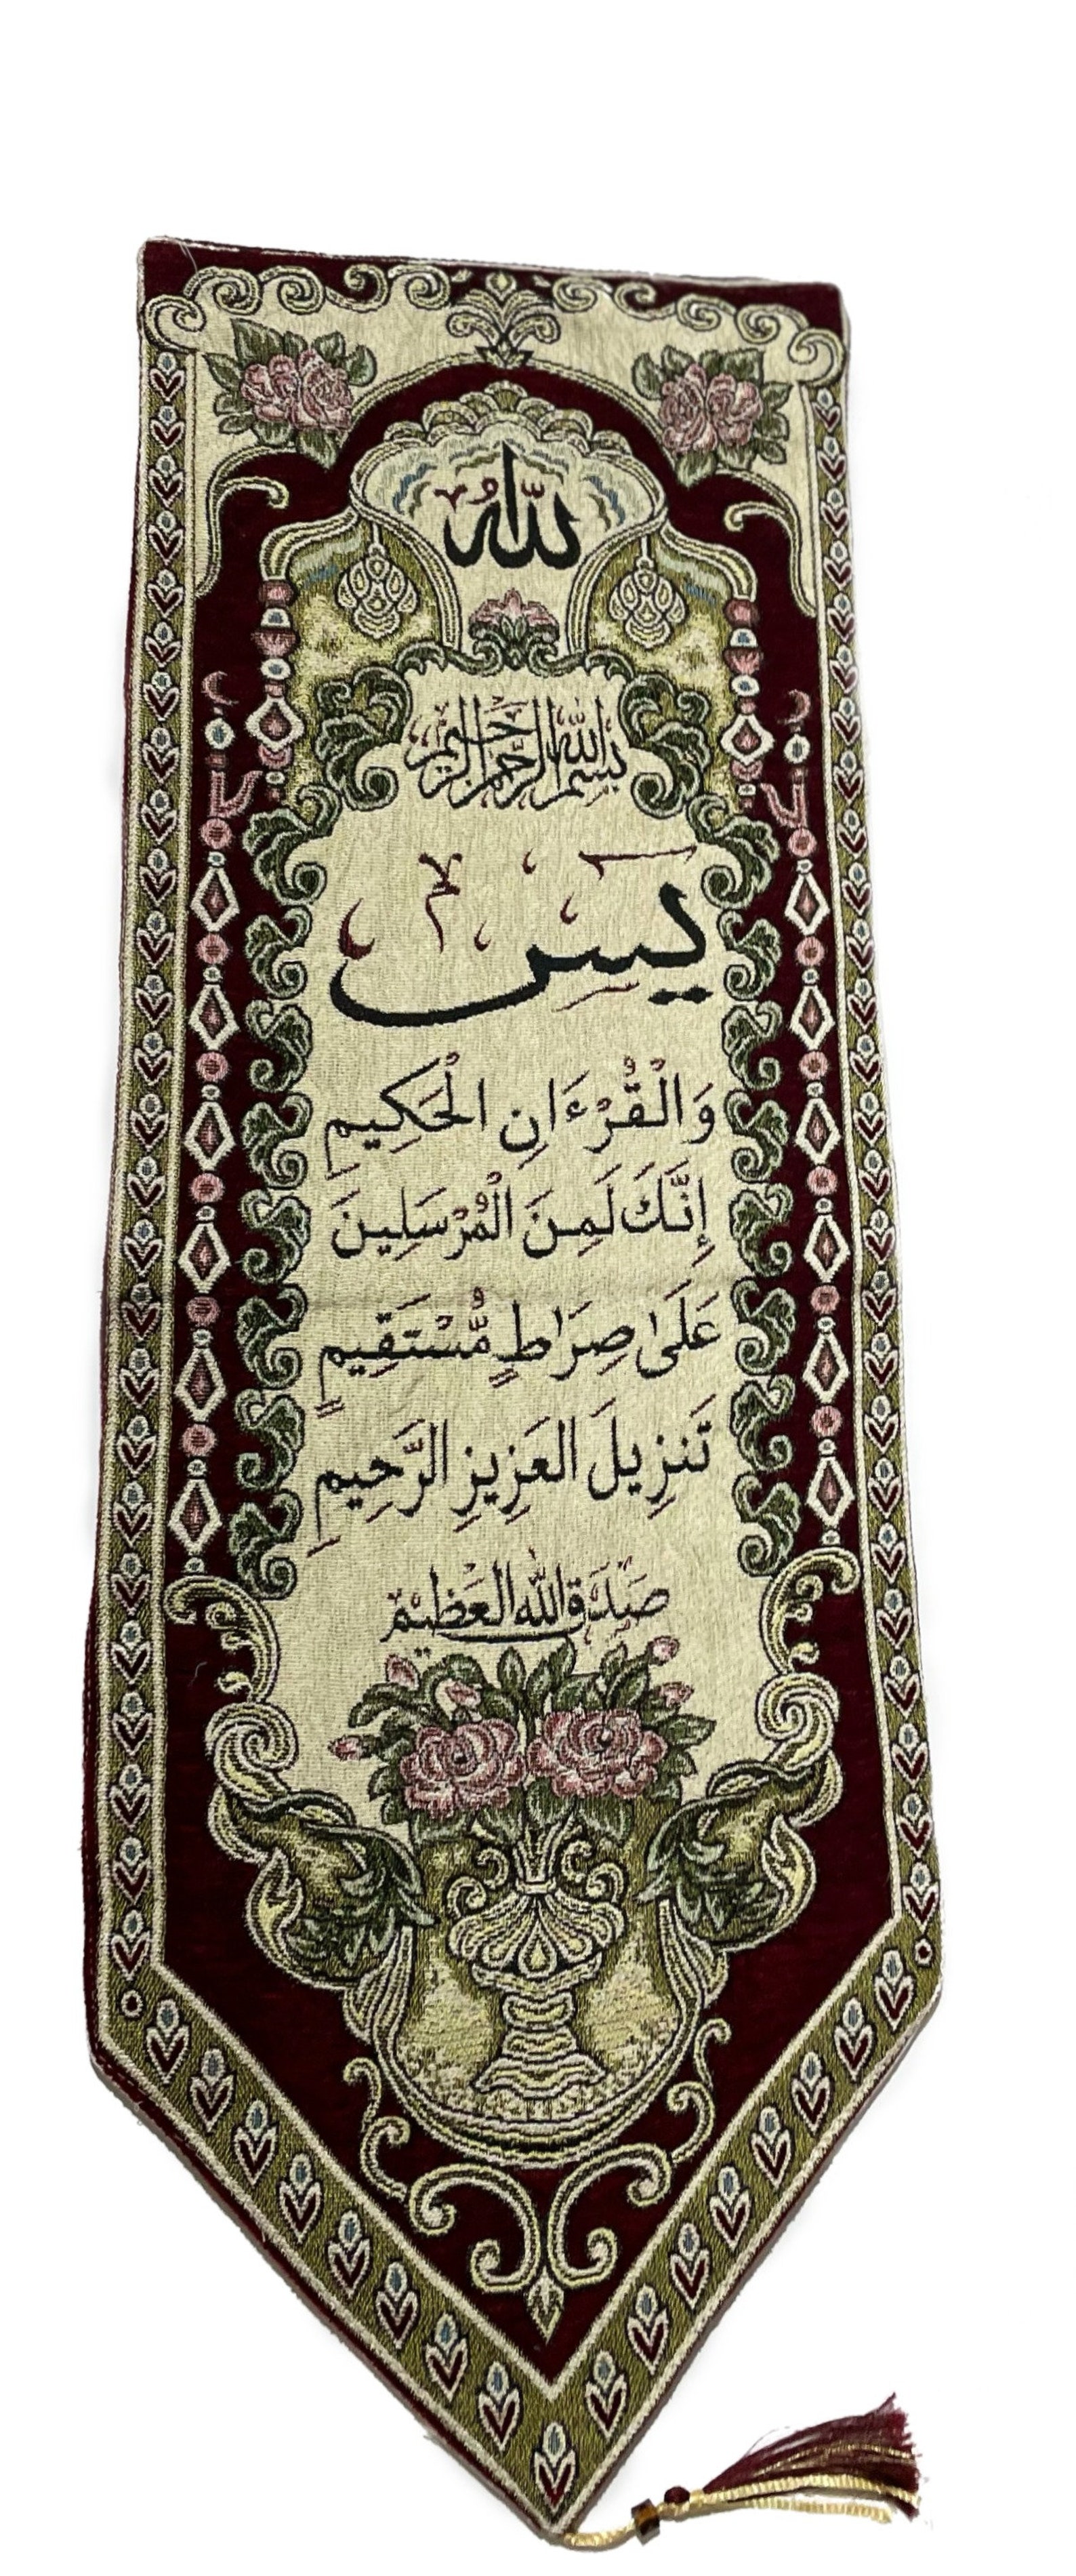 الله
بسم الله الرحمن الرحيم
يس
وَالْقُرْءَانِ الْحَكِيمِ
إِنَّكَ لَمِنَ الْمُرْسَلِينَ
عَلَىٰ صِرَاطٍ مُّسْتَقِيمٍ
تَنزِيلَ العَزِيزِ الرَّحِيمِ
صَدَقَ اللَّه العَظِيْم